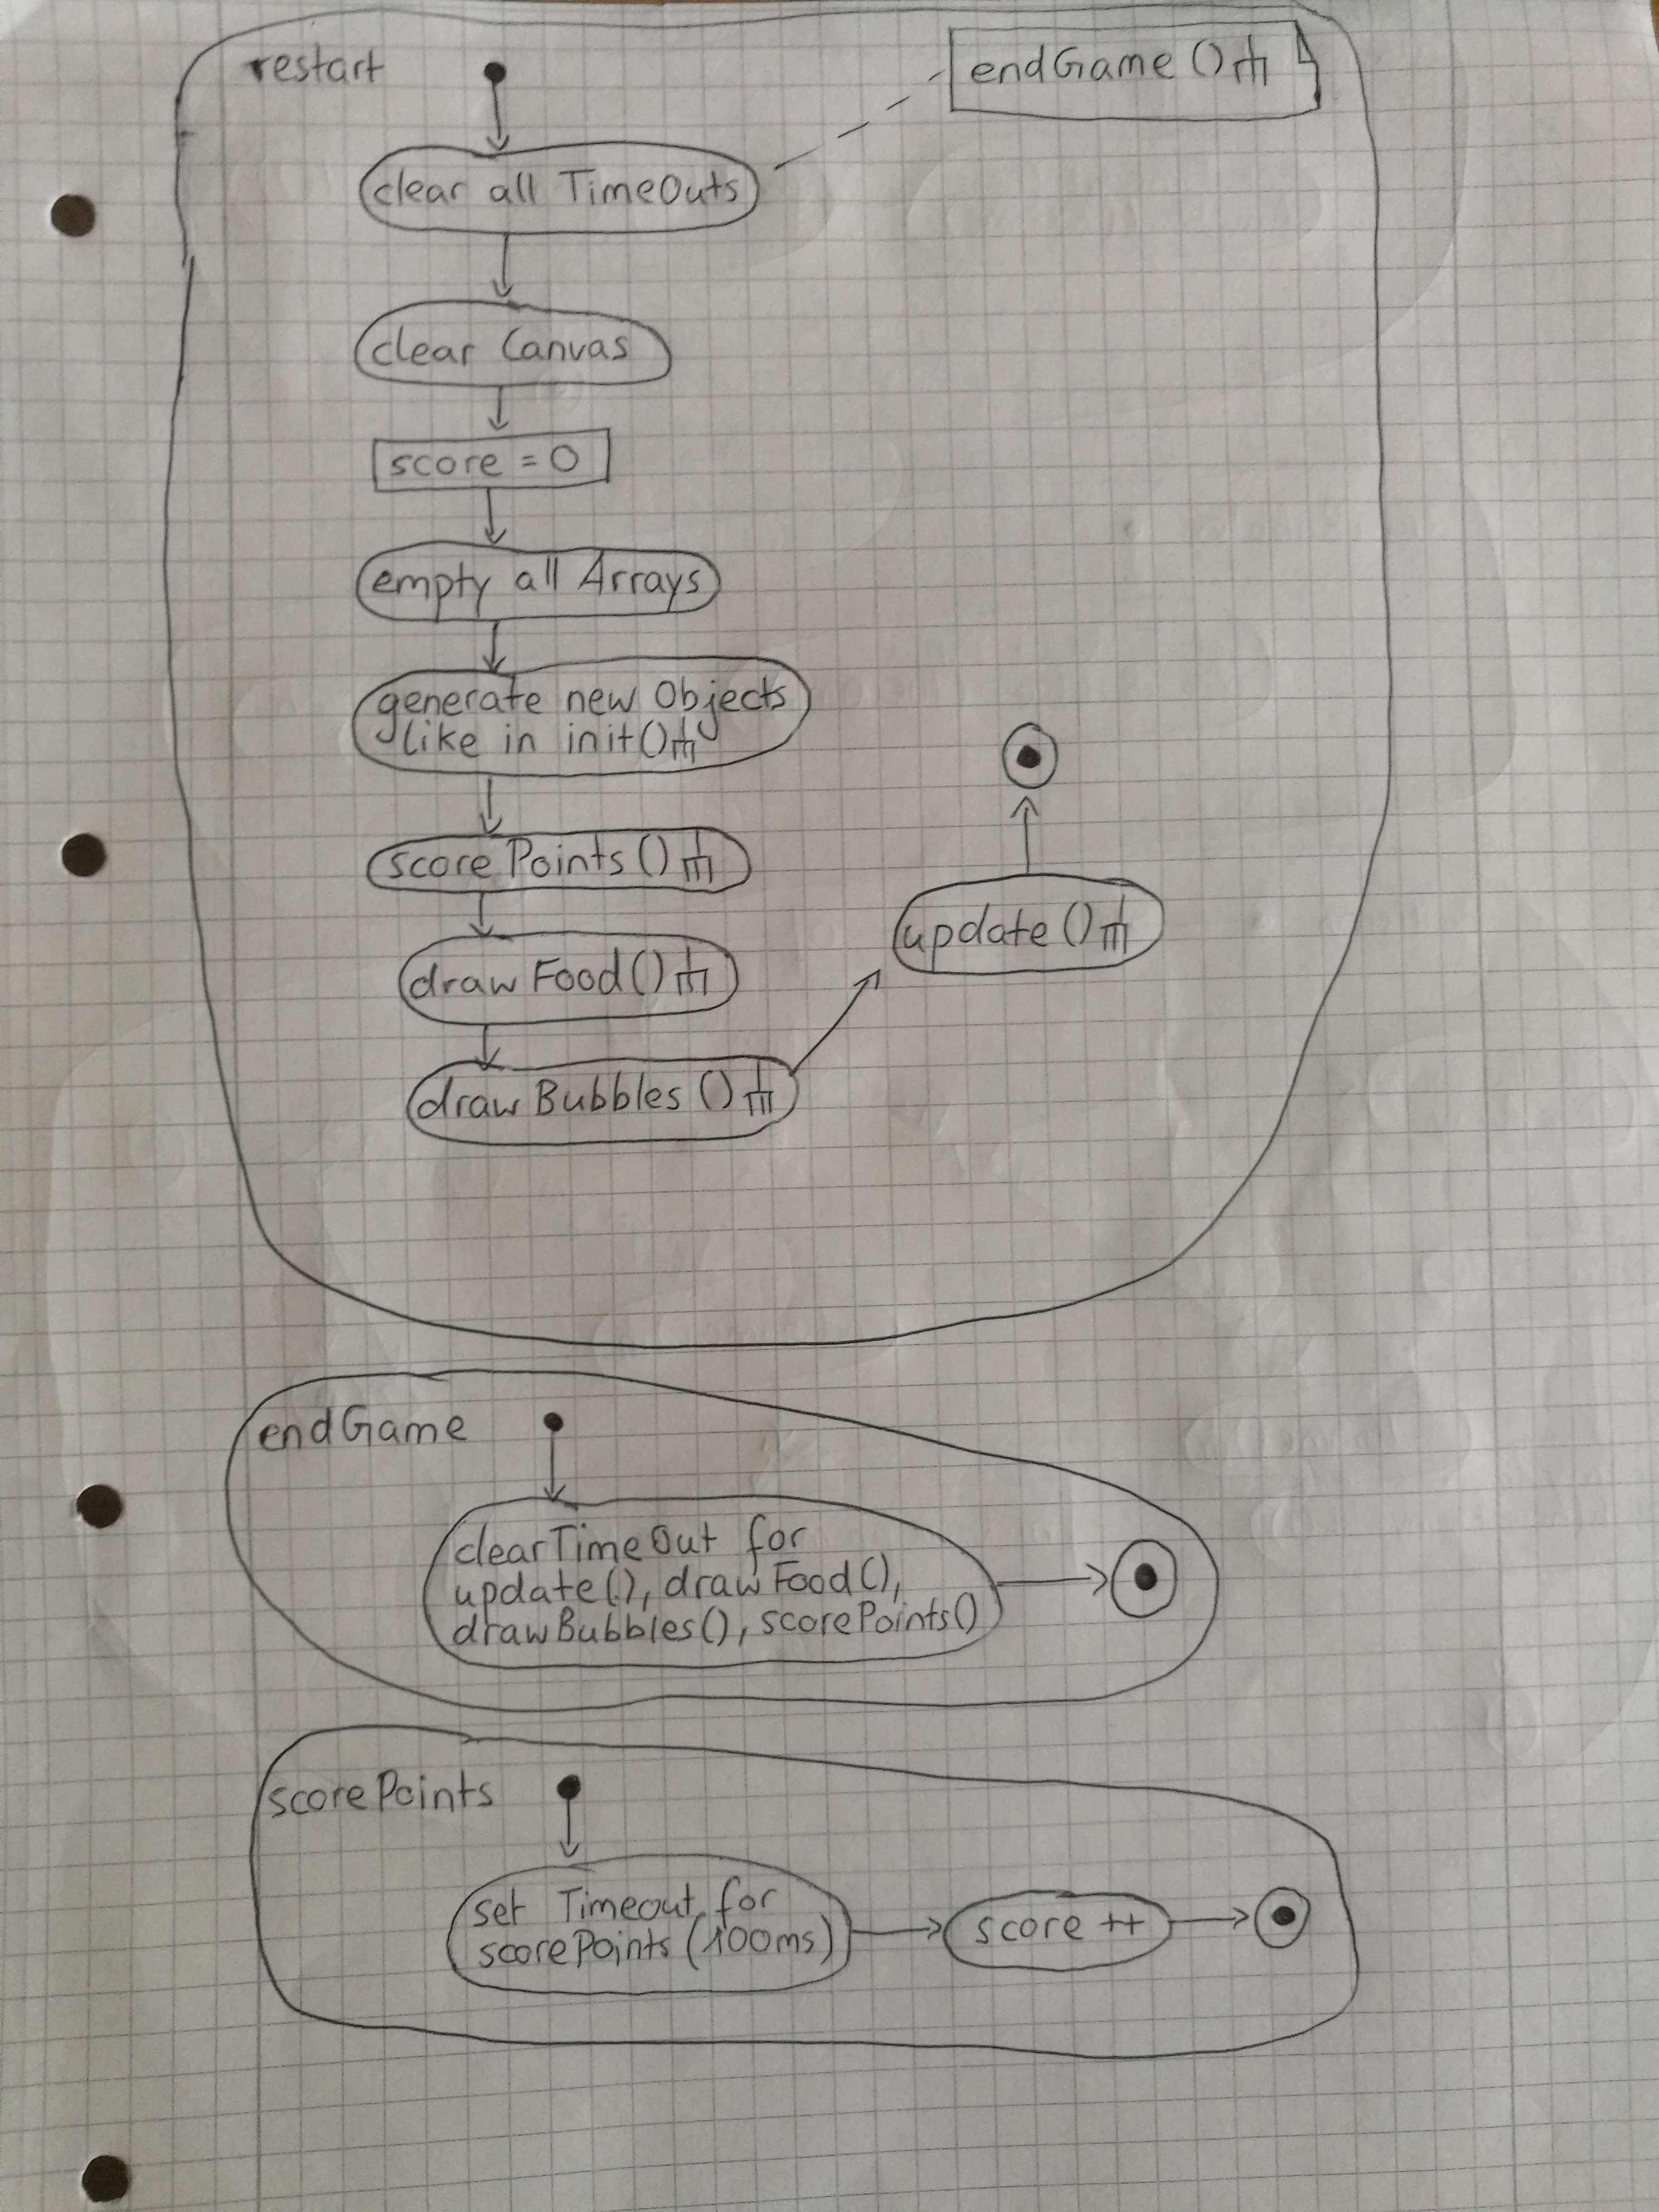 restart
endGame ()
clear all TimeOuts
clear Canvas
score = 0
empty all Arrays
generate new Objects
like in init()
scorePoints ()
drawFood ()
drawBubbles ()
update ()
endGame
clearTimeOut for
update(), drawFood(),
drawBubbles(), scorePoints()
scorePoints
set Timeout for
scorePoints (100ms)
score ++